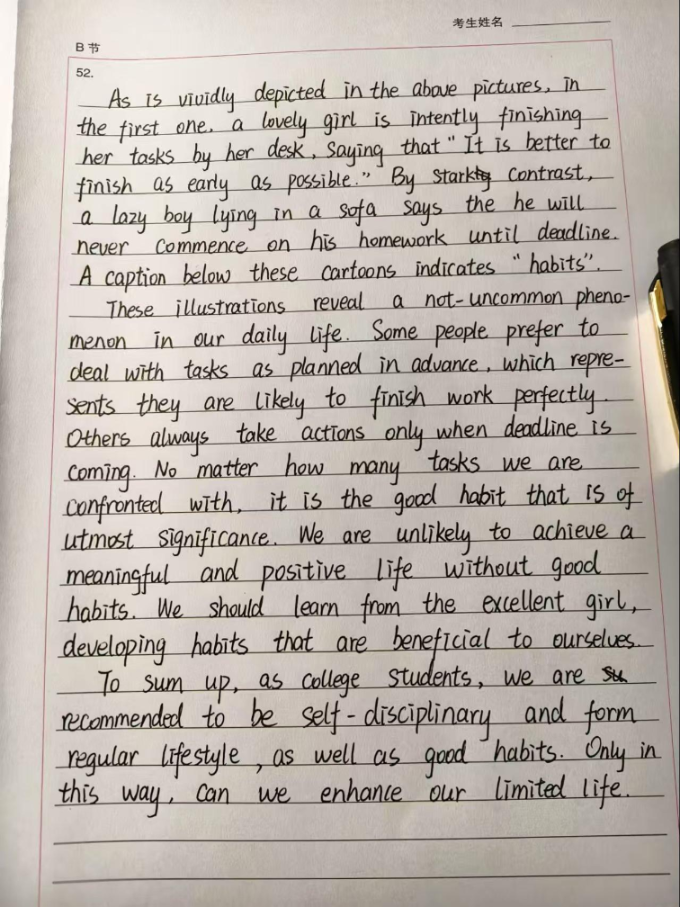 考生姓名
B 节
52.
As is vividly depicted in the above pictures, in
the first one, a lovely girl is intently finishing
her tasks by her desk, saying that "It is better to
finish as early as possible." By stark contrast,
a lazy boy lying in a sofa says the he will
never commence on his homework until deadline.
A caption below these cartoons indicates "habits".
These illustrations reveal a not-uncommon pheno-
menon in our daily life. Some people prefer to
deal with tasks as planned in advance, which repre-
sents they are likely to finish work perfectly.
Others always take actions only when deadline is
coming. No matter how many tasks we are
confronted with, it is the good habit that is of
utmost significance. We are unlikely to achieve a
meaningful and positive life without good
habits. We should learn from the excellent girl,
developing habits that are beneficial to ourselves.
To sum up, as college students, we are
recommended to be self-disciplinary and form
regular lifestyle, as well as good habits. Only in
this way, can we enhance our limited life.